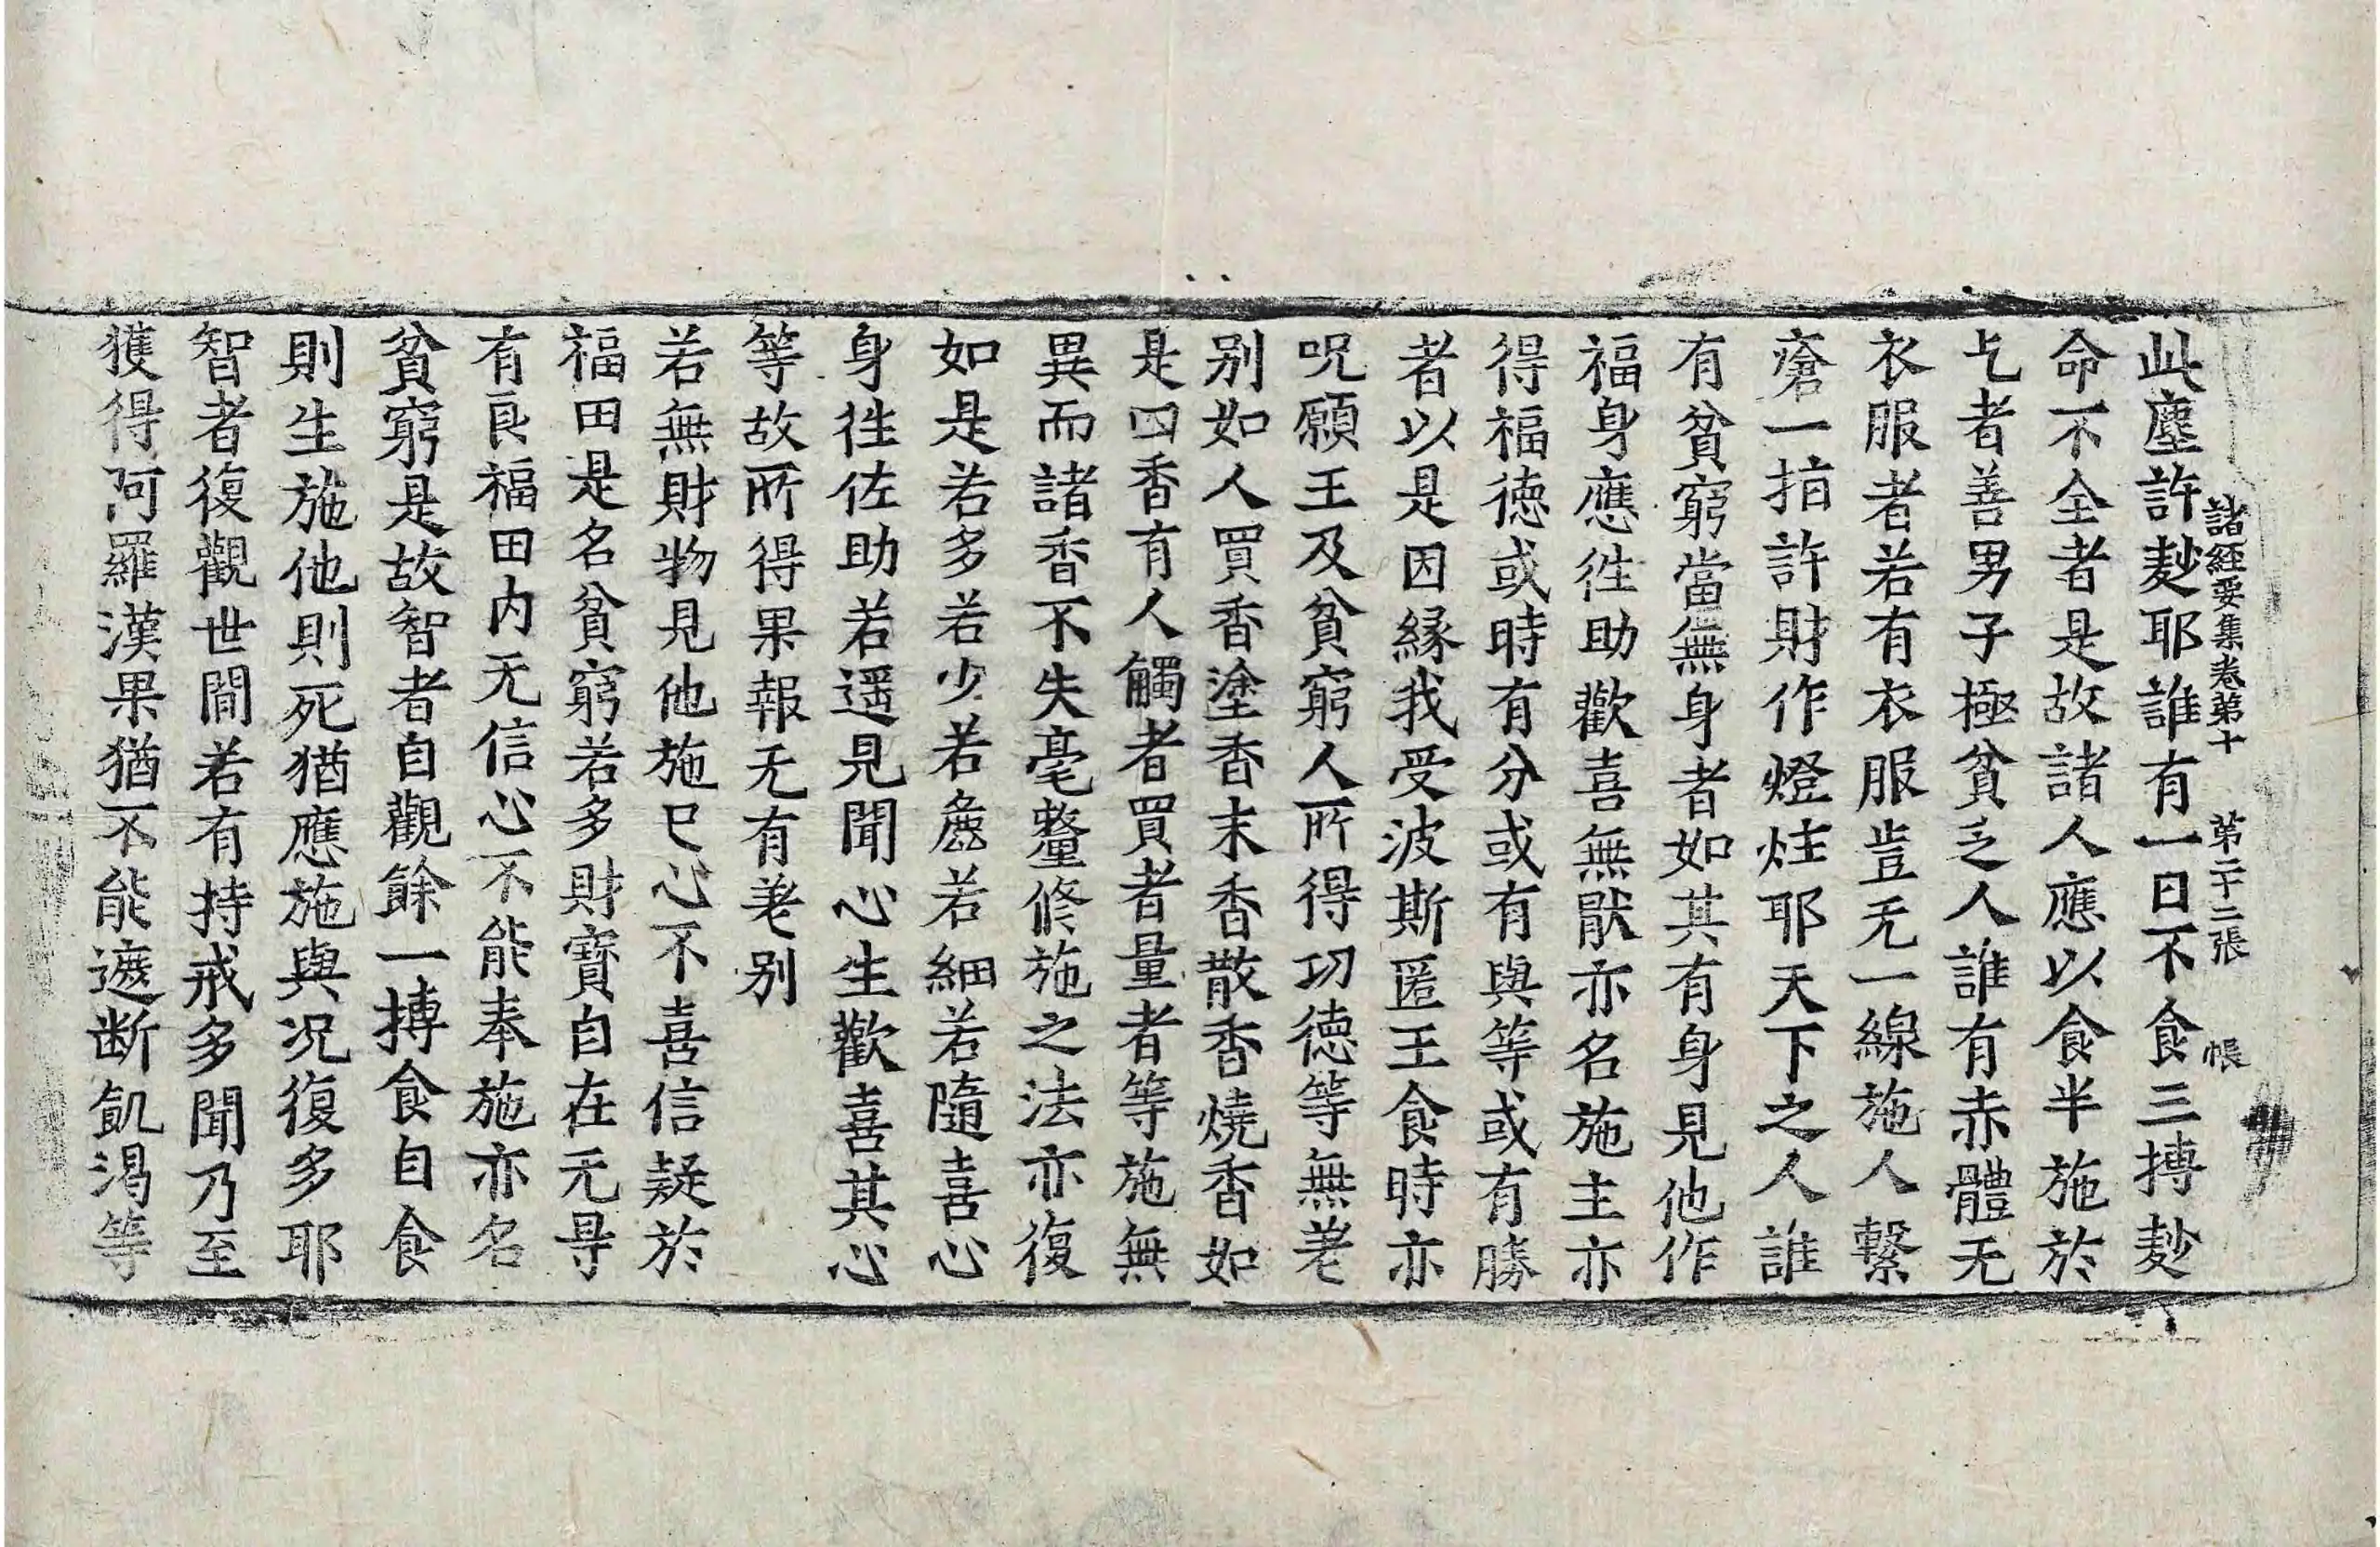 諸經要集卷第十　第二十二張　帳
此塵許麨耶誰有一日不食三摶麨
命不全者是故諸人應以食半施於
乞者善男子極貧乏人誰有赤體无
衣服者若有衣服豈无一線施人繫
瘡一指許財作燈炷耶天下之人誰
有貧窮當無身者如其有身見他作
福身應徃助歡喜無猒亦名施主亦
得福德或時有分或有與等或有勝
者以是因縁我受波斯匿王食時亦
呪願王及貧窮人所得功德等無差
别如人買香塗香末香散香燒香如
是四香有人觸者買者量者等施無
異而諸香不失毫釐修施之法亦復
如是若多若少若麁若細若隨喜心
身徃佐助若遥見聞心生歡喜其心
等故所得果報无有差别
若無財物見他施已心不喜信疑於
福田是名貧窮若多財寳自在无㝵
有良福田内无信心不能奉施亦名
貧窮是故智者自觀餘一摶食自食
則生施他則死猶應施與况復多耶
智者復觀世間若有持戒多聞乃至
獲得阿羅漢果猶不能遮断飢渴等